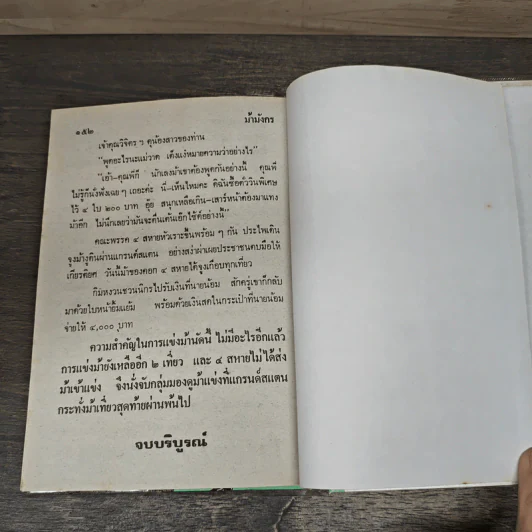 ๑๕๒
ม้ามังกร
เจ้าคุณวิจิตร ฯ คุน้องสาวของท่าน
"พูดอะไรนะแม่วาด เด็งแง้หมายความว่าอย่างไร"
"เอ้า-คุณพี่ก็ นักเลงม้าเขาต้องพูดกันอย่างนี้ คุณพี่
ไม่รู้ก็นั่งฟังเฉย ๆ เถอะค่ะ นี่-เห็นไหมคะ ดิฉันซื้อตั๋ววินพิเศษ
ไว้ ๔ ใบ ๒๐๐ บาท อุ๊ย สนุกเหลือเกิน-เสาร์หน้าต้องมาแทง
ม้าอีก ไม่นึกเลยว่ามันจะตื่นเต้นเอ็กไซ้ค์อย่างนี้"
คณะพรรค ๔ สหายหัวเราะขึ้นพร้อม ๆ กัน ประไพเดิน
จูงม้างูดินผ่านแกรนด์สแตน อย่างสง่าผ่าเผยประชาชนตบมือให้
เกียรติยศ วันนี้ม้าของคอก ๔ สหายได้จูงเกือบทุกเที่ยว
กิมหงวนชวนนิกรไปรับเงินที่นายน้อม สักครู่เขาก็กลับ
มาด้วยใบหน้ายิ้มแย้ม พร้อมด้วยเงินสดในกระเป๋าที่นายน้อม
จ่ายให้ ๔,๐๐๐ บาท
ความสำคัญในการแข่งม้านัดนี้ ไม่มีอะไรอีกแล้ว
การแข่งม้ายังเหลืออีก ๒ เที่ยว และ ๔ สหายไม่ได้ส่ง
ม้าเข้าแข่ง จึงนั่งจับกลุ่มมองดูม้าแข่งที่แกรนด์สแตน
กระทั่งม้าเที่ยวสุดท้ายผ่านพ้นไป
จบบริบูรณ์